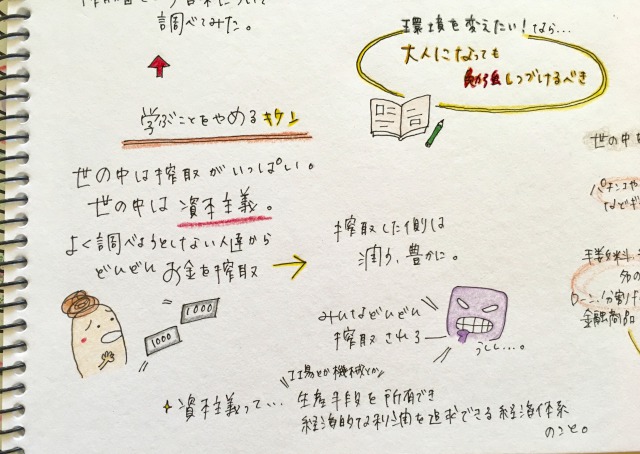 調べてみた。
環境を変えたい！なら…
大人になっても
勉強しつづけるべき
学ぶことをやめるキケン
世の中は搾取がいっぱい。
世の中は資本主義。
よく調べようとしない人達から
どんどんお金を搾取
搾取した側は
潤う、豊かに。
1000
1000
みんなどんどん
搾取される
うしし…。
工場とか機械とか
資本主義って…生産手段を所有でき
経済的な利潤を追求できる経済体系
のこと。
世の中
パチンコや
などギ
手数料
多の
ローン、分割
金融商品